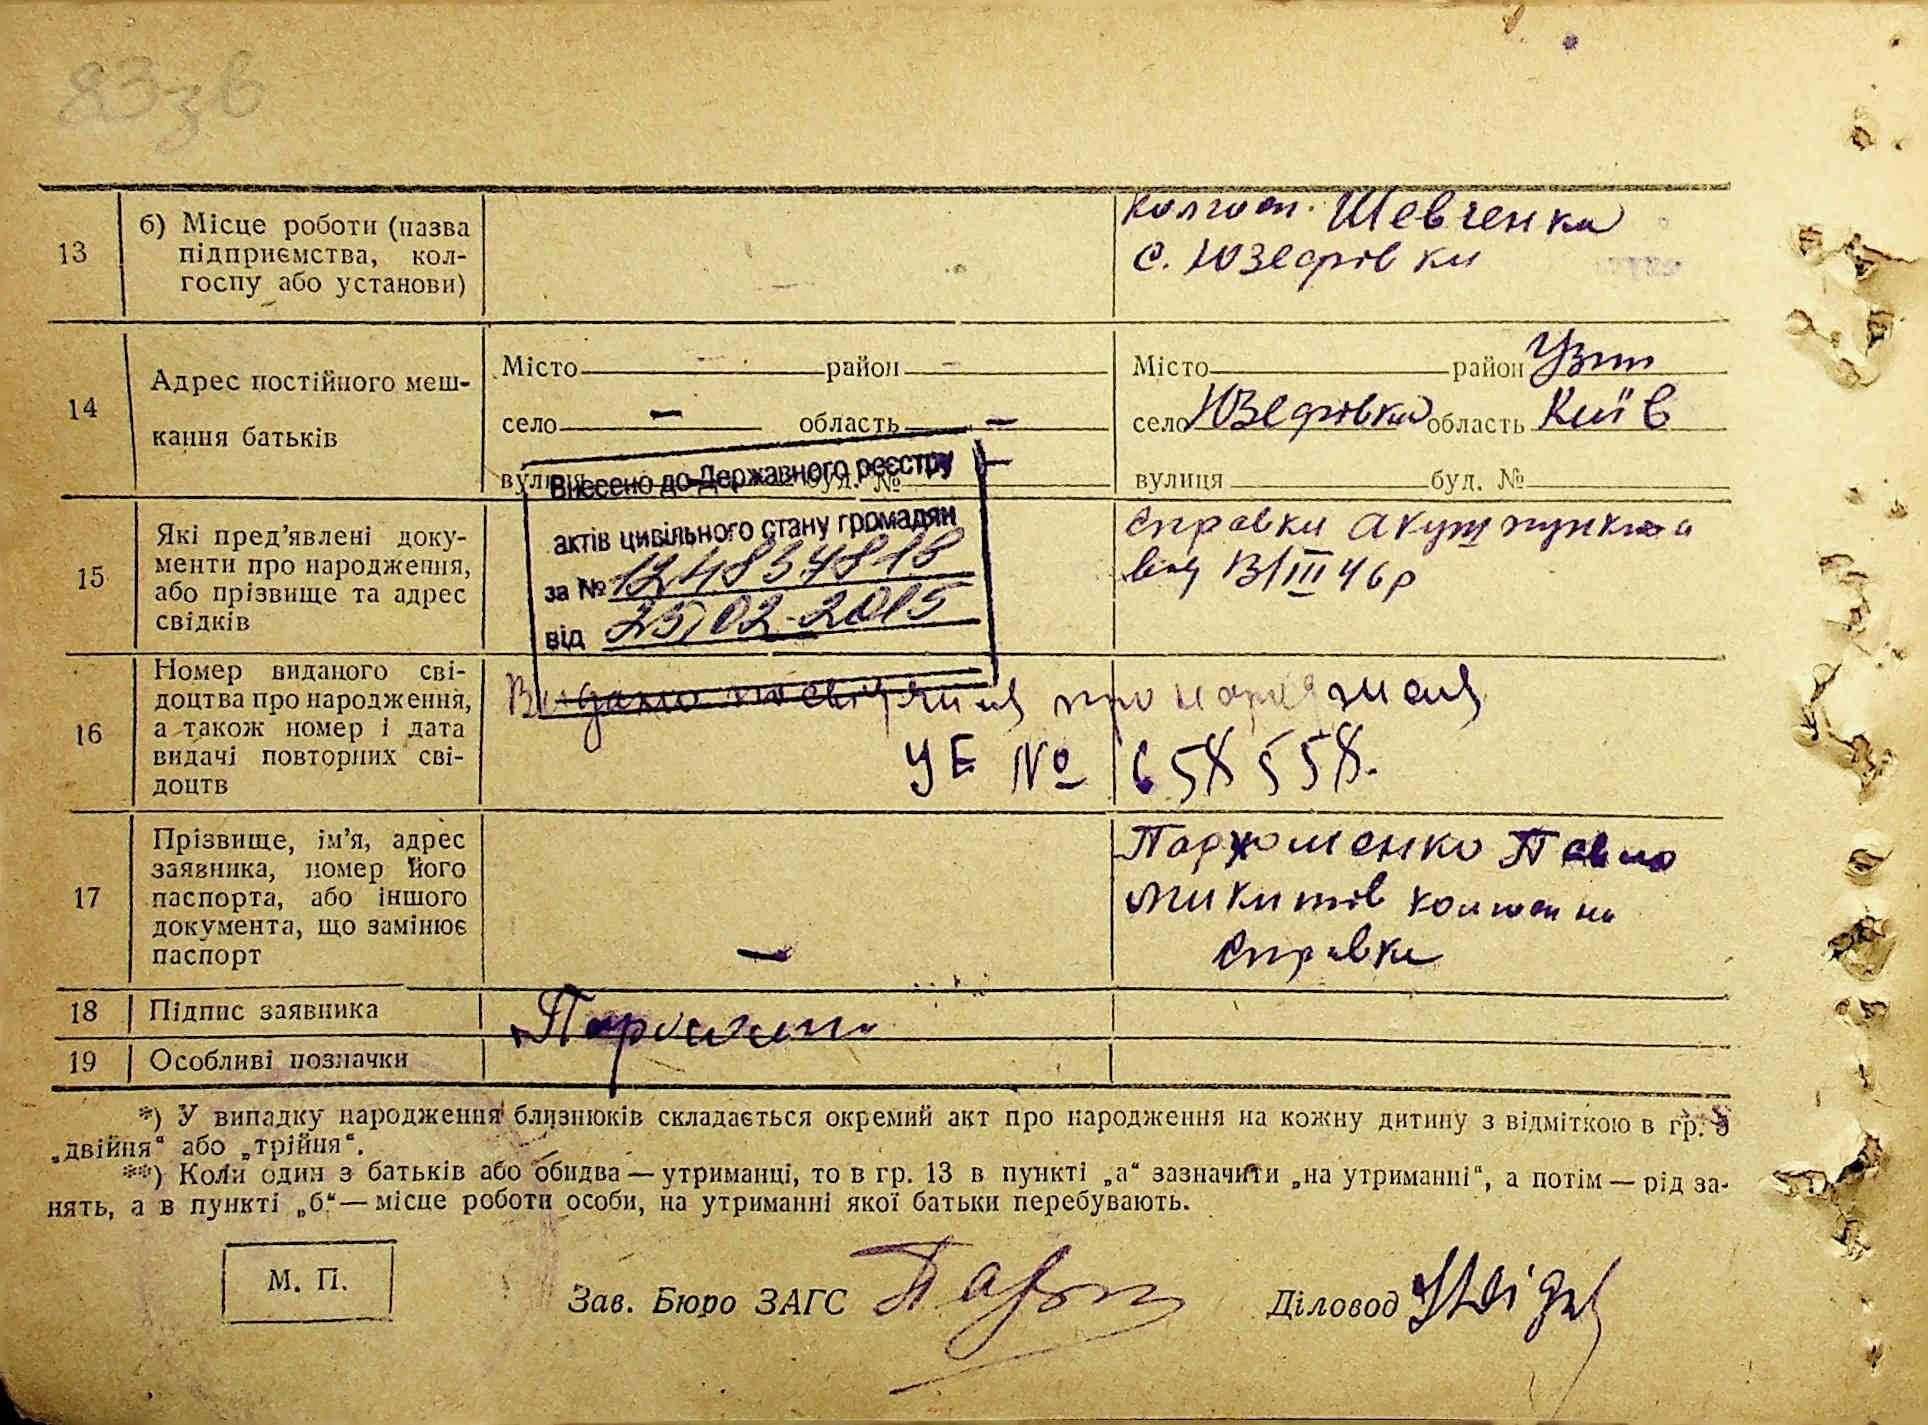 83зв
13
б) Місце роботи (назва
підприємства, кол-
госпу або установи)
Колгосп. Шевченка
с. Юзефівки
14
Адрес постійного меш-
кання батьків
Місто — район —
село — область —
вулиця буд. № —
Місто район Узин
село Юзефівка область Київ
вулиця буд. №
15
Які пред’явлені доку-
менти про народження,
або прізвище та адрес
свідків
Внесено до Державного реєстру
актів цивільного стану громадян
за №
від 25.02.2015
справки Акуш пункта
від 13/III 46р
16
Номер виданого сві-
доцтва про народження,
а також номер і дата
видачі повторних сві-
доцтв
Видано посвідчиня про народженя
УЕ №
17
Прізвище, ім’я, адрес
заявника, номер його
паспорта, або іншого
документа, що замінює
паспорт
—
Пархоменко Павло
Микитов
справка
18
Підпис заявника
19
Особливі позначки
*) У випадку народження близнюків складається окремий акт про народження на кожну дитину з відміткою в гр. 5
„двійня“ або „трійня“.
**) Коли один з батьків або обидва — утриманці, то в гр. 13 в пункті „а“ зазначити „на утриманні“, а потім — рід за-
нять, а в пункті „б“ — місце роботи особи, на утриманні якої батьки перебувають.
М. П.
Зав. Бюро ЗАГС
Діловод